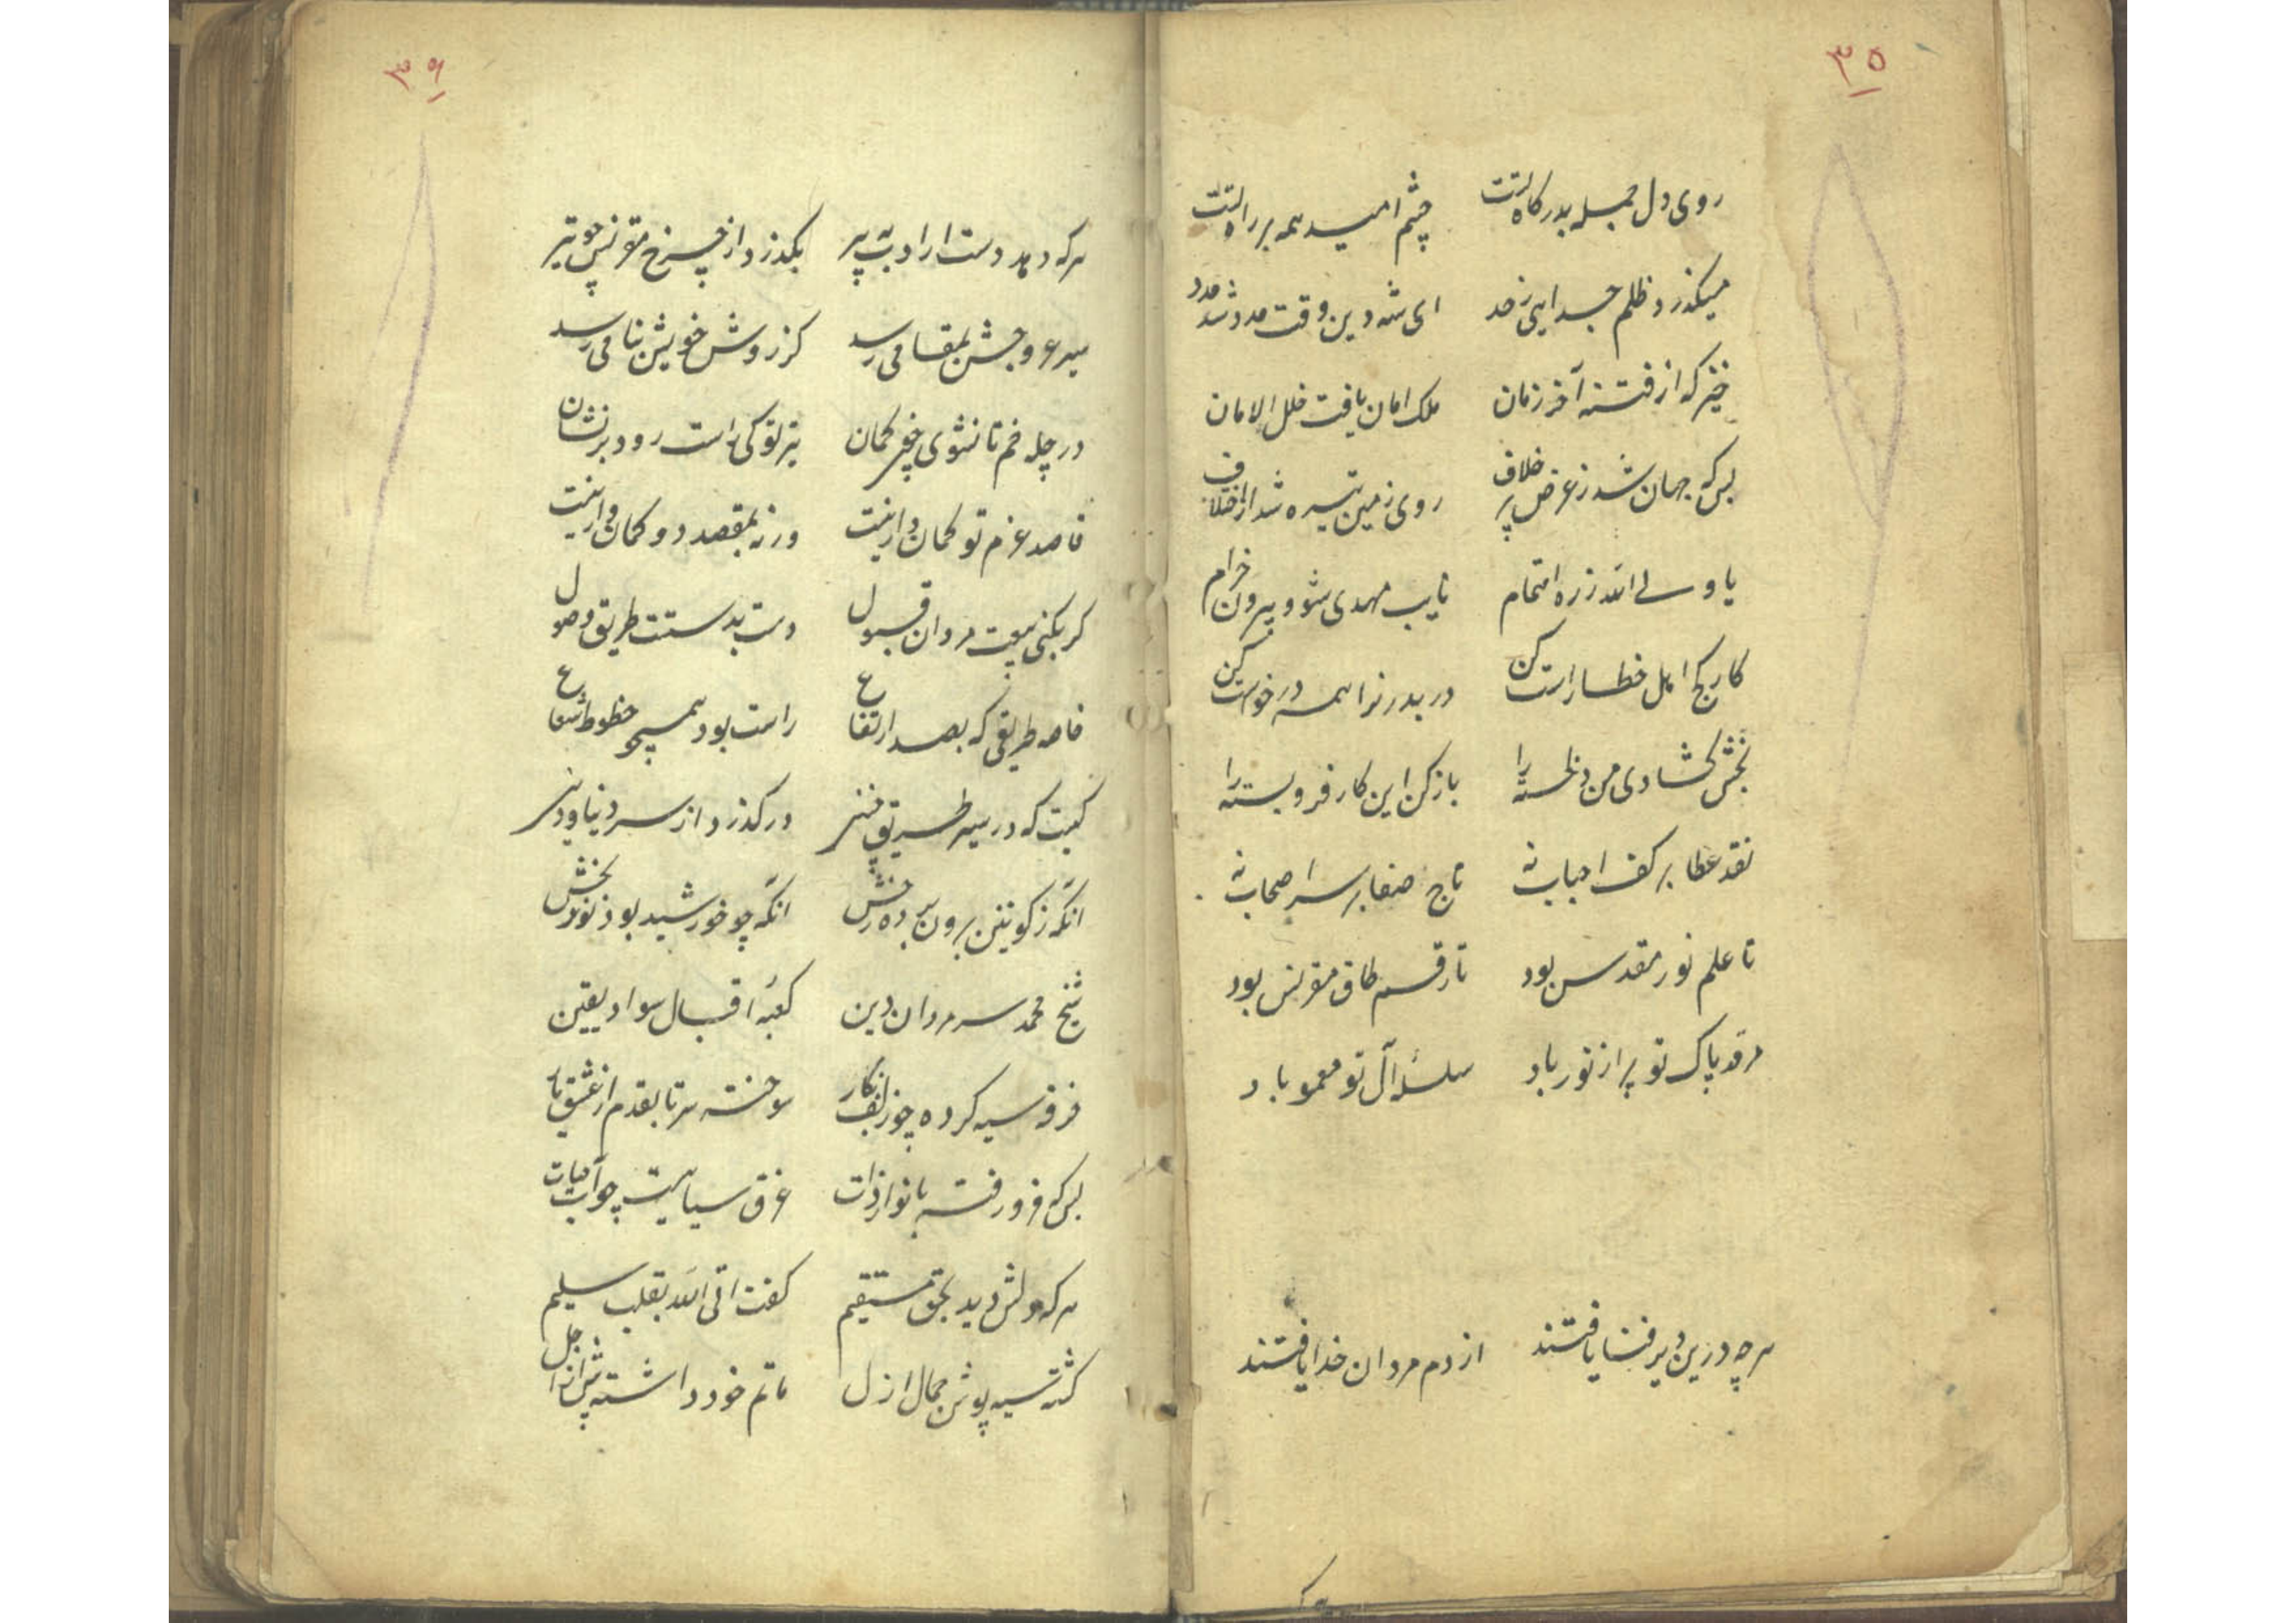 ۳۵
روی دل جمله بدرکاه تست چشم امید همه بر راه تست
میکذرد ظلم جدایی ز حد ای شه دین وقت مدد شد مدد
خیز که از فتنه آخر زمان ملک امان یافت خلل الامان
بس که جهان شد ز غرض پر خلاف روی زمین تیره شد از اختلاف
یا ولی الله ز ره اهتمام نایب مهدی شو و بیرون خرام
کار کج اهل خطا راست کن در بدر نرا همه درخواست کن
بخش کشادی من دلخسته را باز کن این کار فروبسته را
نقد عطا بر کف احباب نه تاج صفا بر سر اصحاب نه
تا علم نور مقدس بود تا رقم طاق مقرنس بود
مرقد پاک تو پر از نور باد سلسلهٔ آل تو معمور باد
هرچه درین دیر فنا یافتند از دم مردان خدا یافتند
۳۶
هرکه دهد دست ارادت به پیر بکذرد از چرخ مقرنس چو تیر
سیر عروجش بمقامی رسد کز روش خویش بنامی رسد
در چله خم تا نشوی چون کمان تیر تو کی راست رود بر نشان
قاصد عزم تو کمان وار نیست ورنه بمقصد دو کمان وار نیست
کر بکنی بیعت مردان قبول دست بدستت طریق وصول
خاصه طریقی که بصد ارتفاع راست بود همچو خطوط شعاع
کیست که در سیر طریق هنر در کذرد از سر دنیا و دین
آنکه ز کونین برون برده رخش آنکه چو خورشید بود نوربخش
شیخ محمد سر مردان دین کعبهٔ اقبال سواد یقین
خرقه سیه کرده چو زلف نکار سوخته سر تا بقدم از عشق یار
بس که فرو رفته بانوار ذات غرق سیاهیست چو آب حیات
هرکه دلش دید بحق مستقیم کفت اتی الله بقلب سلیم
کشته سیه پوش جمال ازل ماتم خود داشته پیش از اجل